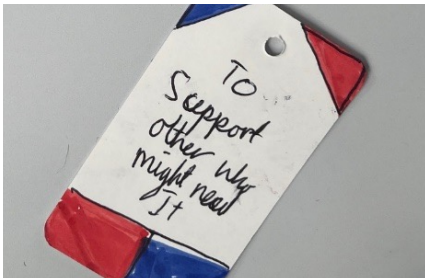 To
Support
other who
might need
It